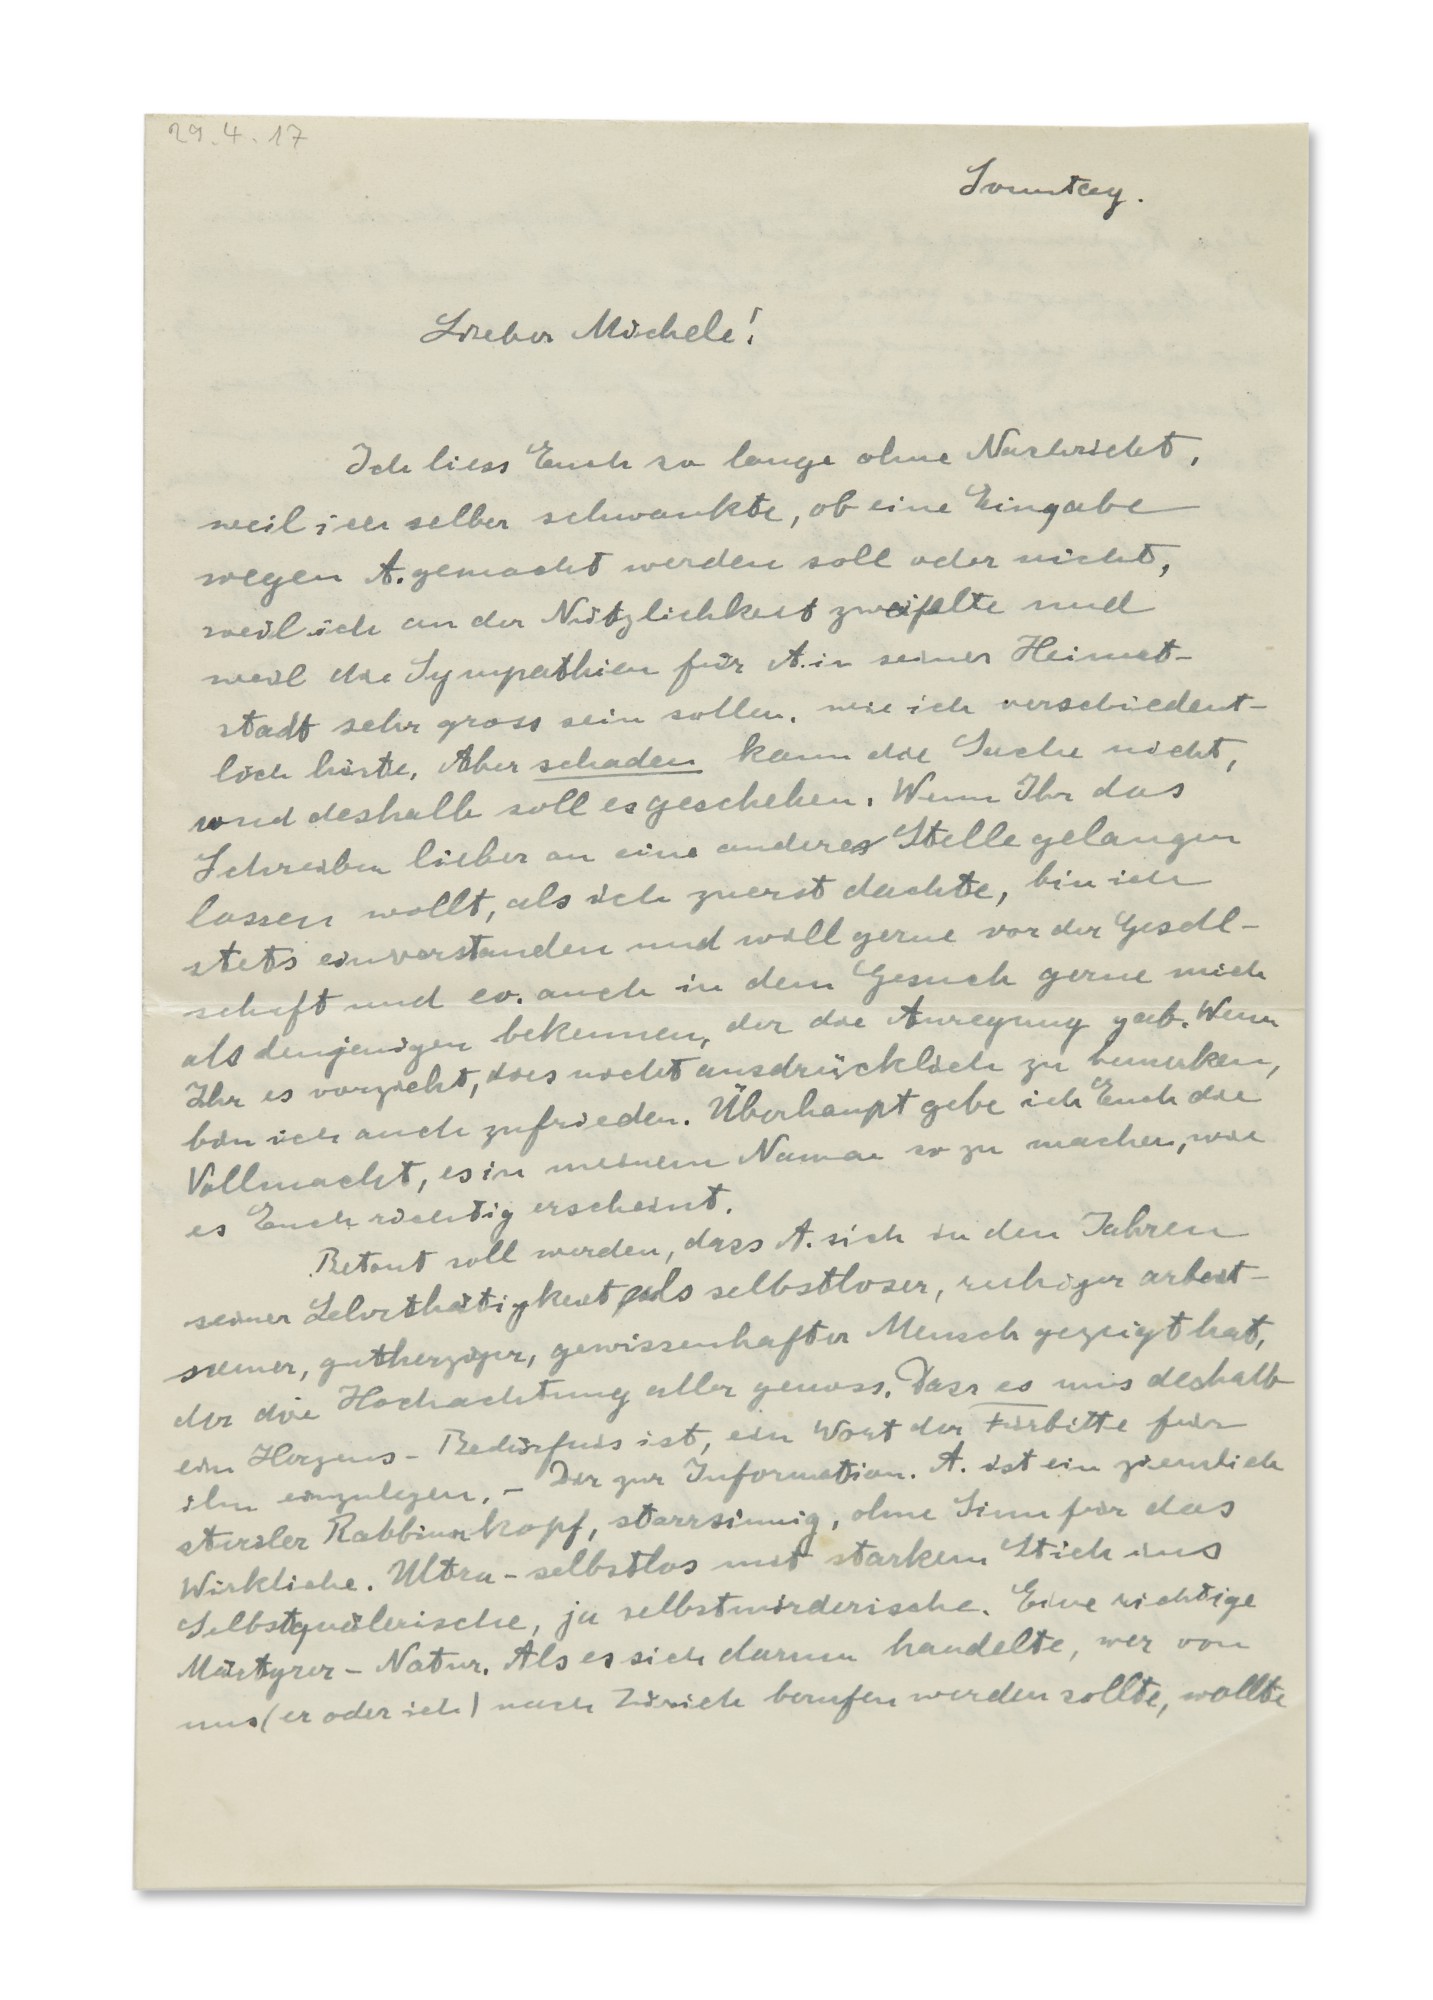 29.4.17
Sonntag.
Lieber Michele!
Ich liess Euch so lange ohne Nachricht,
weil ich selber schwankte, ob eine Eingabe
wegen A. gemacht werden soll oder nicht,
weil ich an der Nützlichkeit zweifelte und
weil die Sympathien für A. in seiner Heimat-
stadt sehr gross sein sollen, wie ich verschiedent-
lich hörte. Aber schaden kann die Sache nicht,
und deshalb soll es geschehen. Wenn Ihr das
Schreiben lieber an eine andere Stelle gelangen
lassen wollt, als ich zuerst dachte, bin ich
stets einverstanden und will gerne vor der Gesell-
schaft und ev. auch in dem Gesuch gerne mich
als denjenigen bekennen, der die Anregung gab. Wenn
Ihr es vorzieht, dies nicht ausdrücklich zu bemerken,
bin ich auch zufrieden. Überhaupt gebe ich Euch die
Vollmacht, es in meinem Namen so zu machen, wie
es Euch richtig erscheint.
Betont soll werden, dass A. sich in den Jahren
seiner Lehrthätigkeit als selbstloser, ruhiger arbeit-
samer, gutherziger, gewissenhafter Mensch gezeigt hat,
der die Hochachtung aller genoss. Dass es uns deshalb
ein Herzens-Bedürfnis ist, ein Wort der Fürbitte für
ihn einzulegen. - Dir zur Information. A. ist ein ziemlich
steriler Rabbinerkopf, starrsinnig, ohne Sinn für das
Wirkliche. Ultra-selbstlos mit starkem Stich ins
Selbstquälerische, ja selbstmörderische. Eine richtige
Märtyrer-Natur. Als es sich darum handelte, wer von
uns (er oder ich) nach Zürich berufen werden sollte, wollte